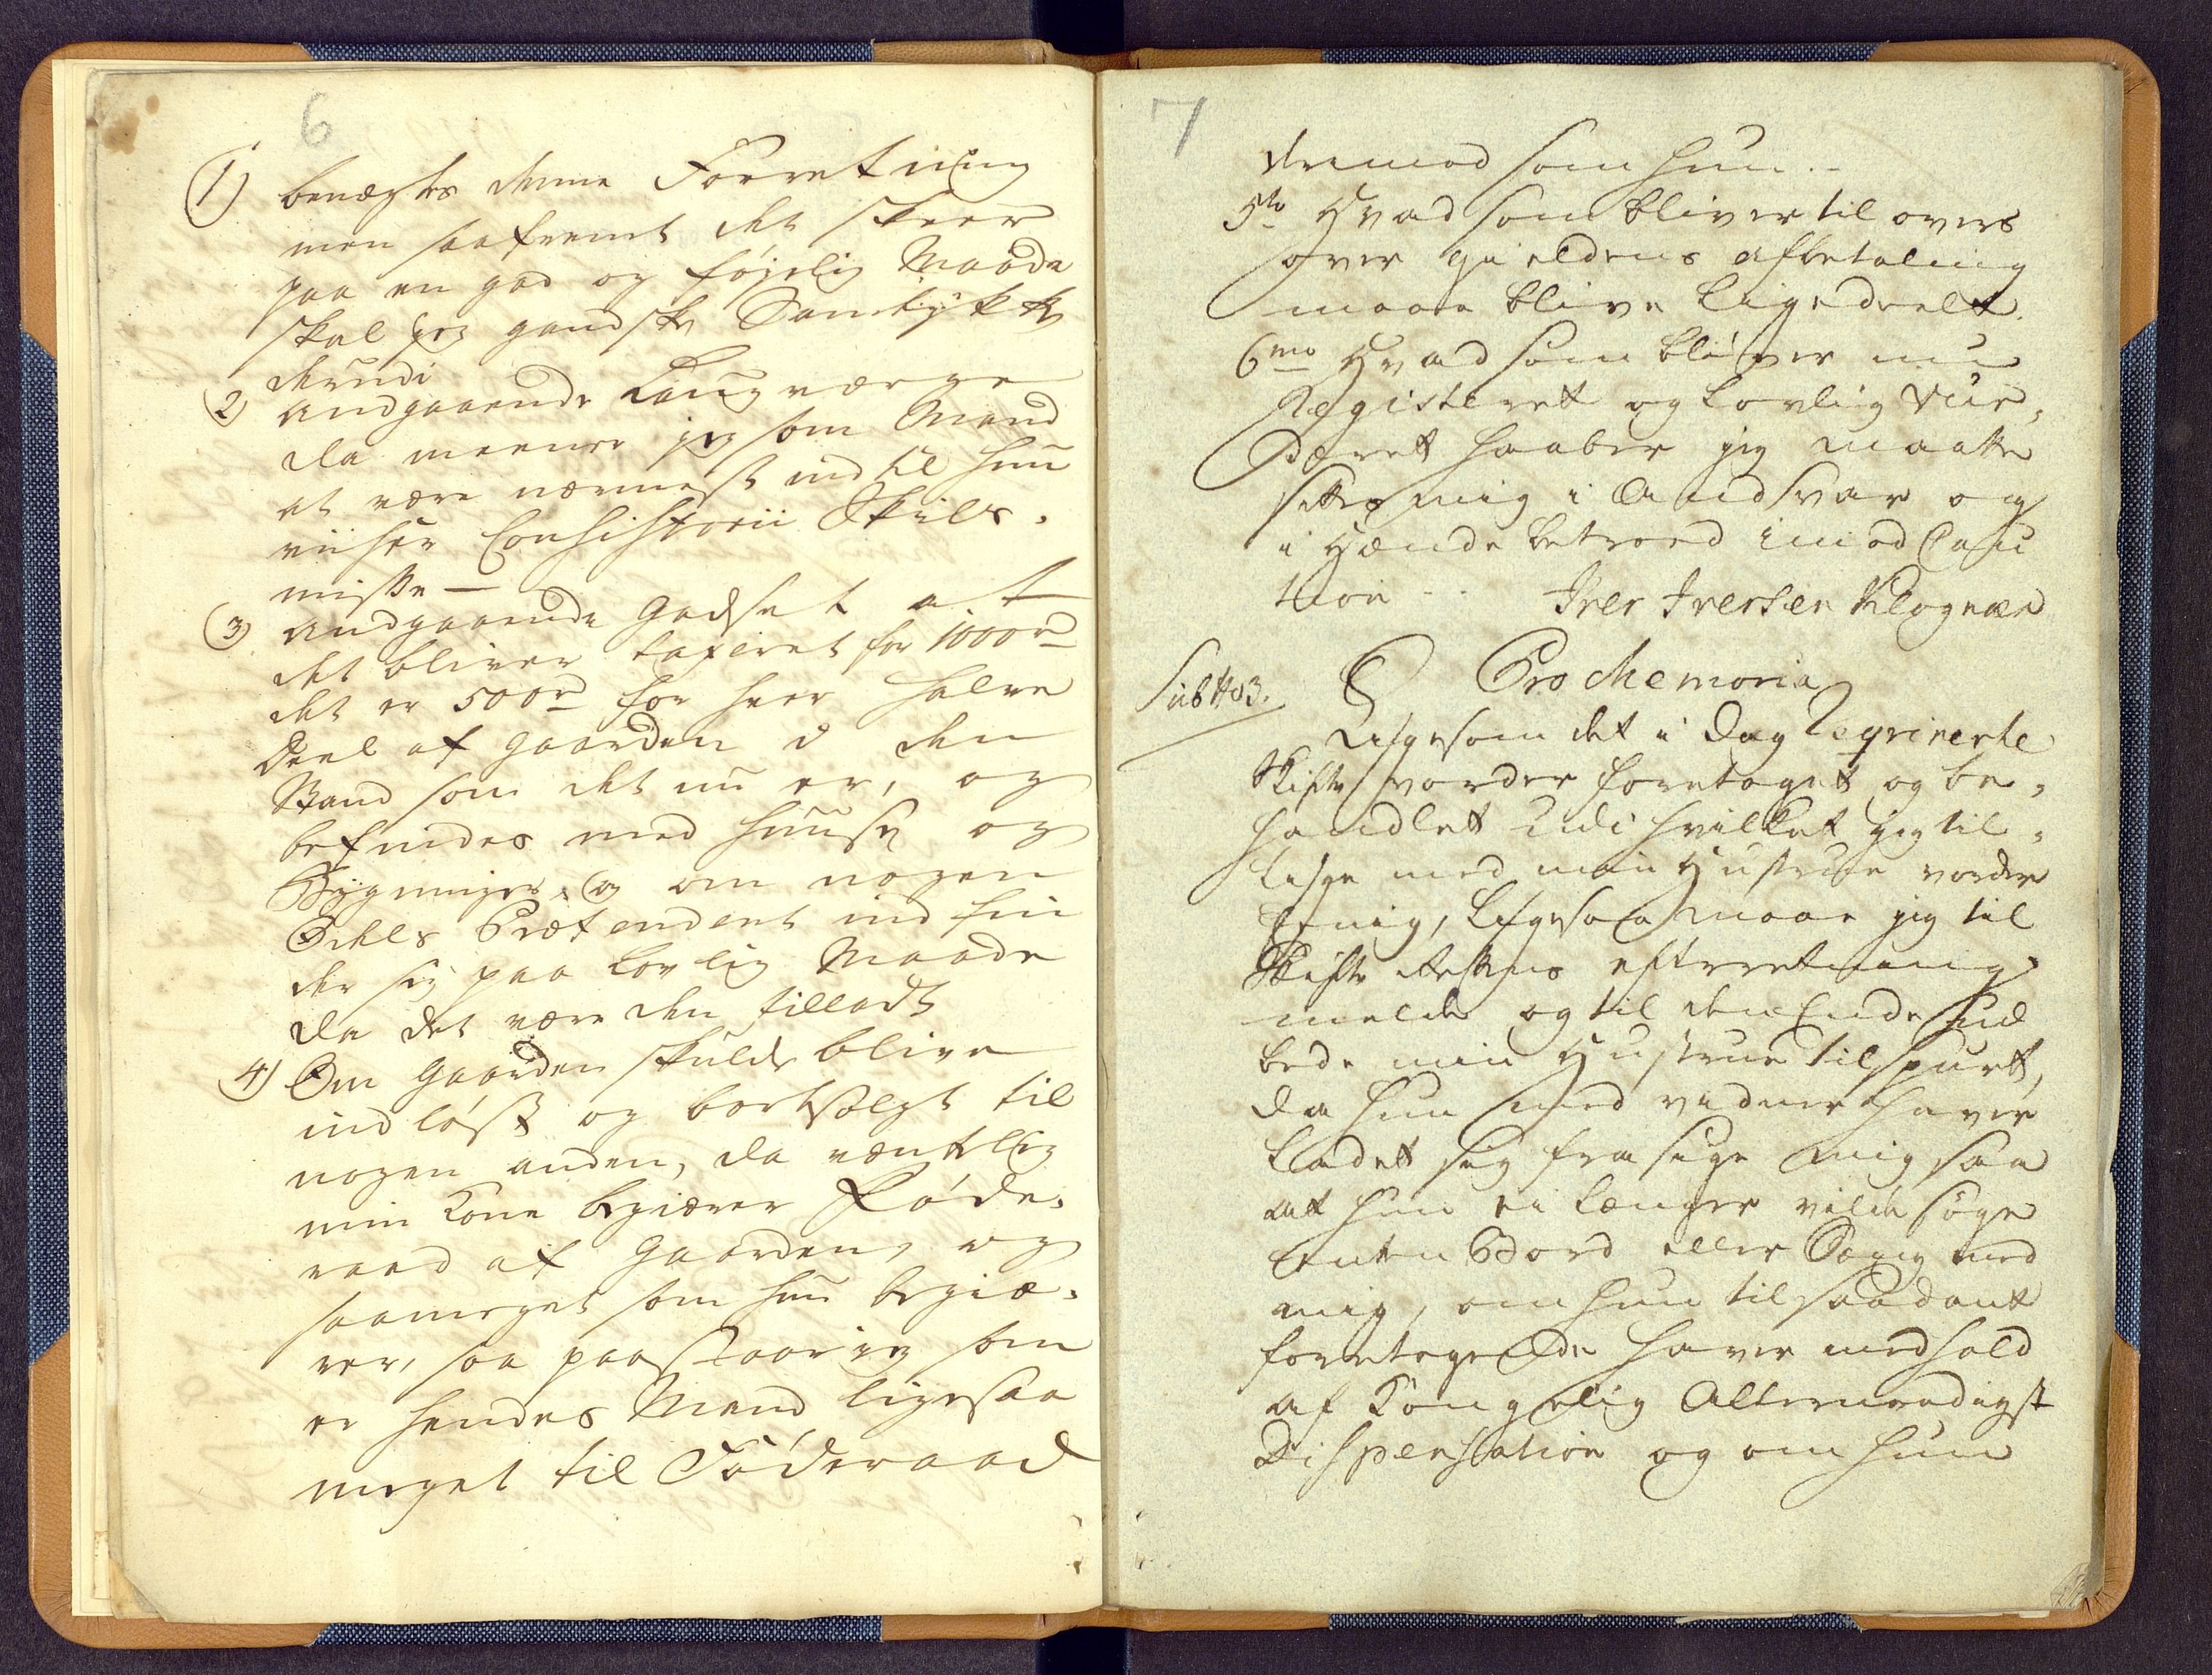 6
1) benægtes denne Forretning
men saafremt det skeer
paa en god og føjelig Maade
skal jeg gandske Samtykke
derudi
2) andgaaende Laugværge
da meener jeg som Mand
at være nærmest indtil hun
viiser Consistorii Skils-
misse —
3) andgaaende Godset at
det bliver taxeret for 1000rd
det er 500rd for hver halve
Deel af Gaarden i den
Stand som det nu er, og
befindes med Huuse og
Bygninger, og om nogen
Odels Prætendent indfin
der sig paa lovlig Maade
da det være den tilladt
4) Om Gaarden skulde blive
indløst og bortsolgt til
nogen anden, da ventelig
min Kone begierer Føde-
raad af Gaarden, og
saameget som hun begiæ-
rer, saa paastaar jeg som
er hendes Mand ligesaa
meget til Föderaad
7
derimod som hun. -
5to Hvad som bliver til overs
over gieldens afbetaling
maae blive ligedeelt.
6mo Hvad som bliver nu
Registeret og lovlig Vur-
deret haaber jeg maatte
settes mig i Andsvar og
i Hænde betroed imod Cau
tion - - Iver Iversen Klognæs
Sub No 3.
Pro Memoria
Ligesom det i Dag Reqvirerte
Skifte vorder foretaget og be-
handlet udi hvilket jeg til-
lige med min Hustrue vorder
Eenig, ligesaa maae jeg til
Skifte Rettens efterretning
melde og til den Ende hud
bede min Hustrue tilspurt,
da hun med vidner haver
ladet sig fra sige mig saa
at hun ei længer vilde søge
enten Bord eller Sæng med
mig, om hun til saadant
foretagende haver medhold
af Kongelig Allernaadigst
Dispensation og om hun